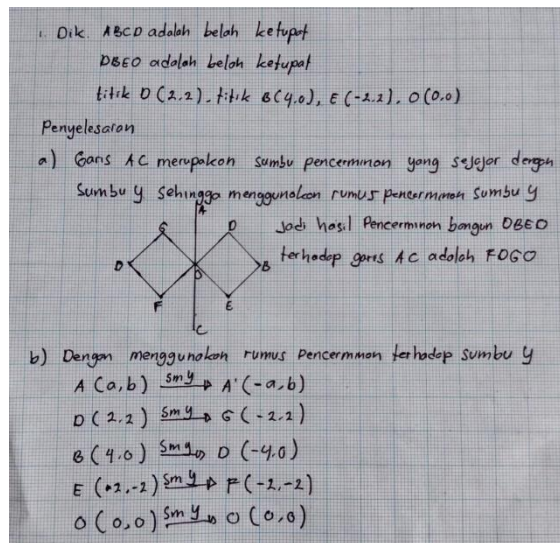 1. Dik. ABCD adalah belah ketupat
DBEO adalah belah ketupat
titik D (2.2). titik B(4.0), E(-2.2), O(0.0)
Penyelesaian
a) Garis AC merupakan sumbu pencerminan yang sejajar dengan
Sumbu y sehingga menggunakan rumus pencerminan sumbu y
Jadi hasil Pencerminan bangun DBEO
terhadap garis AC adalah FOGO
A
G
D
D
O
B
F
E
C
b) Dengan menggunakan rumus Pencerminan terhadap sumbu y
A (a,b) Sm y A' (-a,b)
D ( 2.2 ) Sm y G ( -2.2)
B ( 4.0 ) Sm y D (-4.0)
E (2,-2) Sm y F (-2,-2)
O ( 0,0 ) Sm y O ( 0,0 )